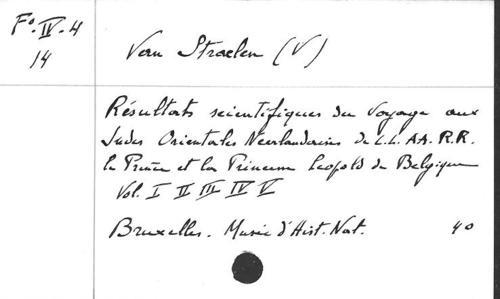 F°.IV.4
14
Van Straelen (V)
Résultats scientifiques du Voyage aux
Indes Orientales Néerlandaises de L.L. AA. R.R.
le Prince et la Princesse Leopold de Belgique
Vol. I II III IV V
Bruxelles. Musée d'Hist. Nat. 40